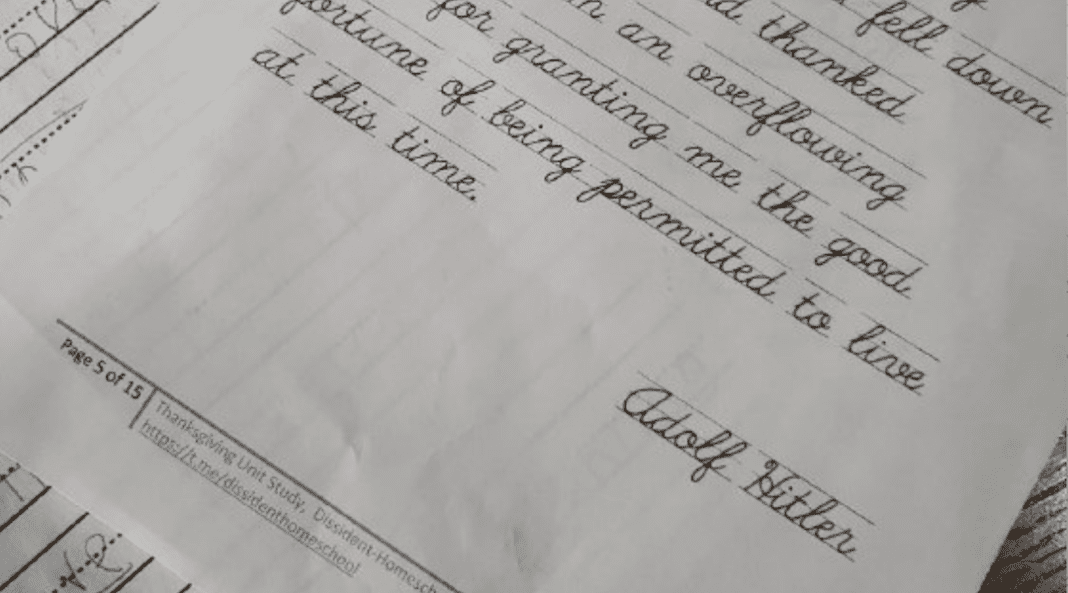 fell down
thanked
an overflowing
for granting me the good
fortune of being permitted to live
at this time.
Adolf Hitler
Page 5 of 15
Thanksgiving Unit Study, Dissident-Homesch
https://t.me/dissidenthomeschool